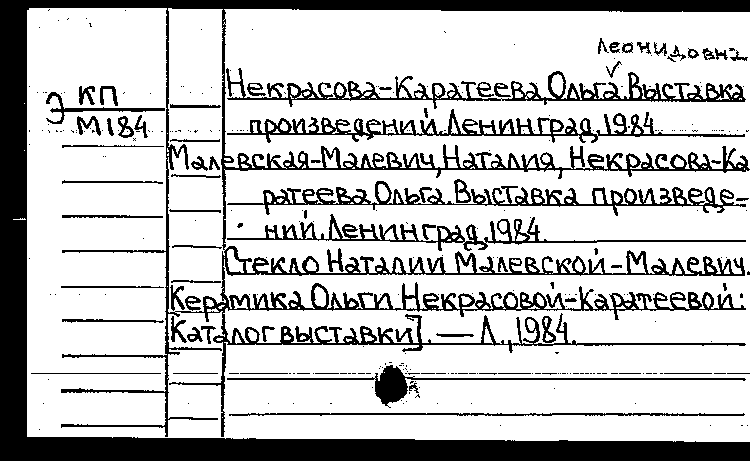 Леонидовна
Э КП
М184
Некрасова-Каратеева, Ольга. Выставка
произведений. Ленинград, 1984.
Малевская-Малевич, Наталия, Некрасова-Ка
ратеева, Ольга. Выставка произведе-
ний. Ленинград, 1984.
Стекло Наталии Малевской-Малевич.
Керамика Ольги Некрасовой-Каратеевой:
[Каталог выставки]. — Л., 1984.